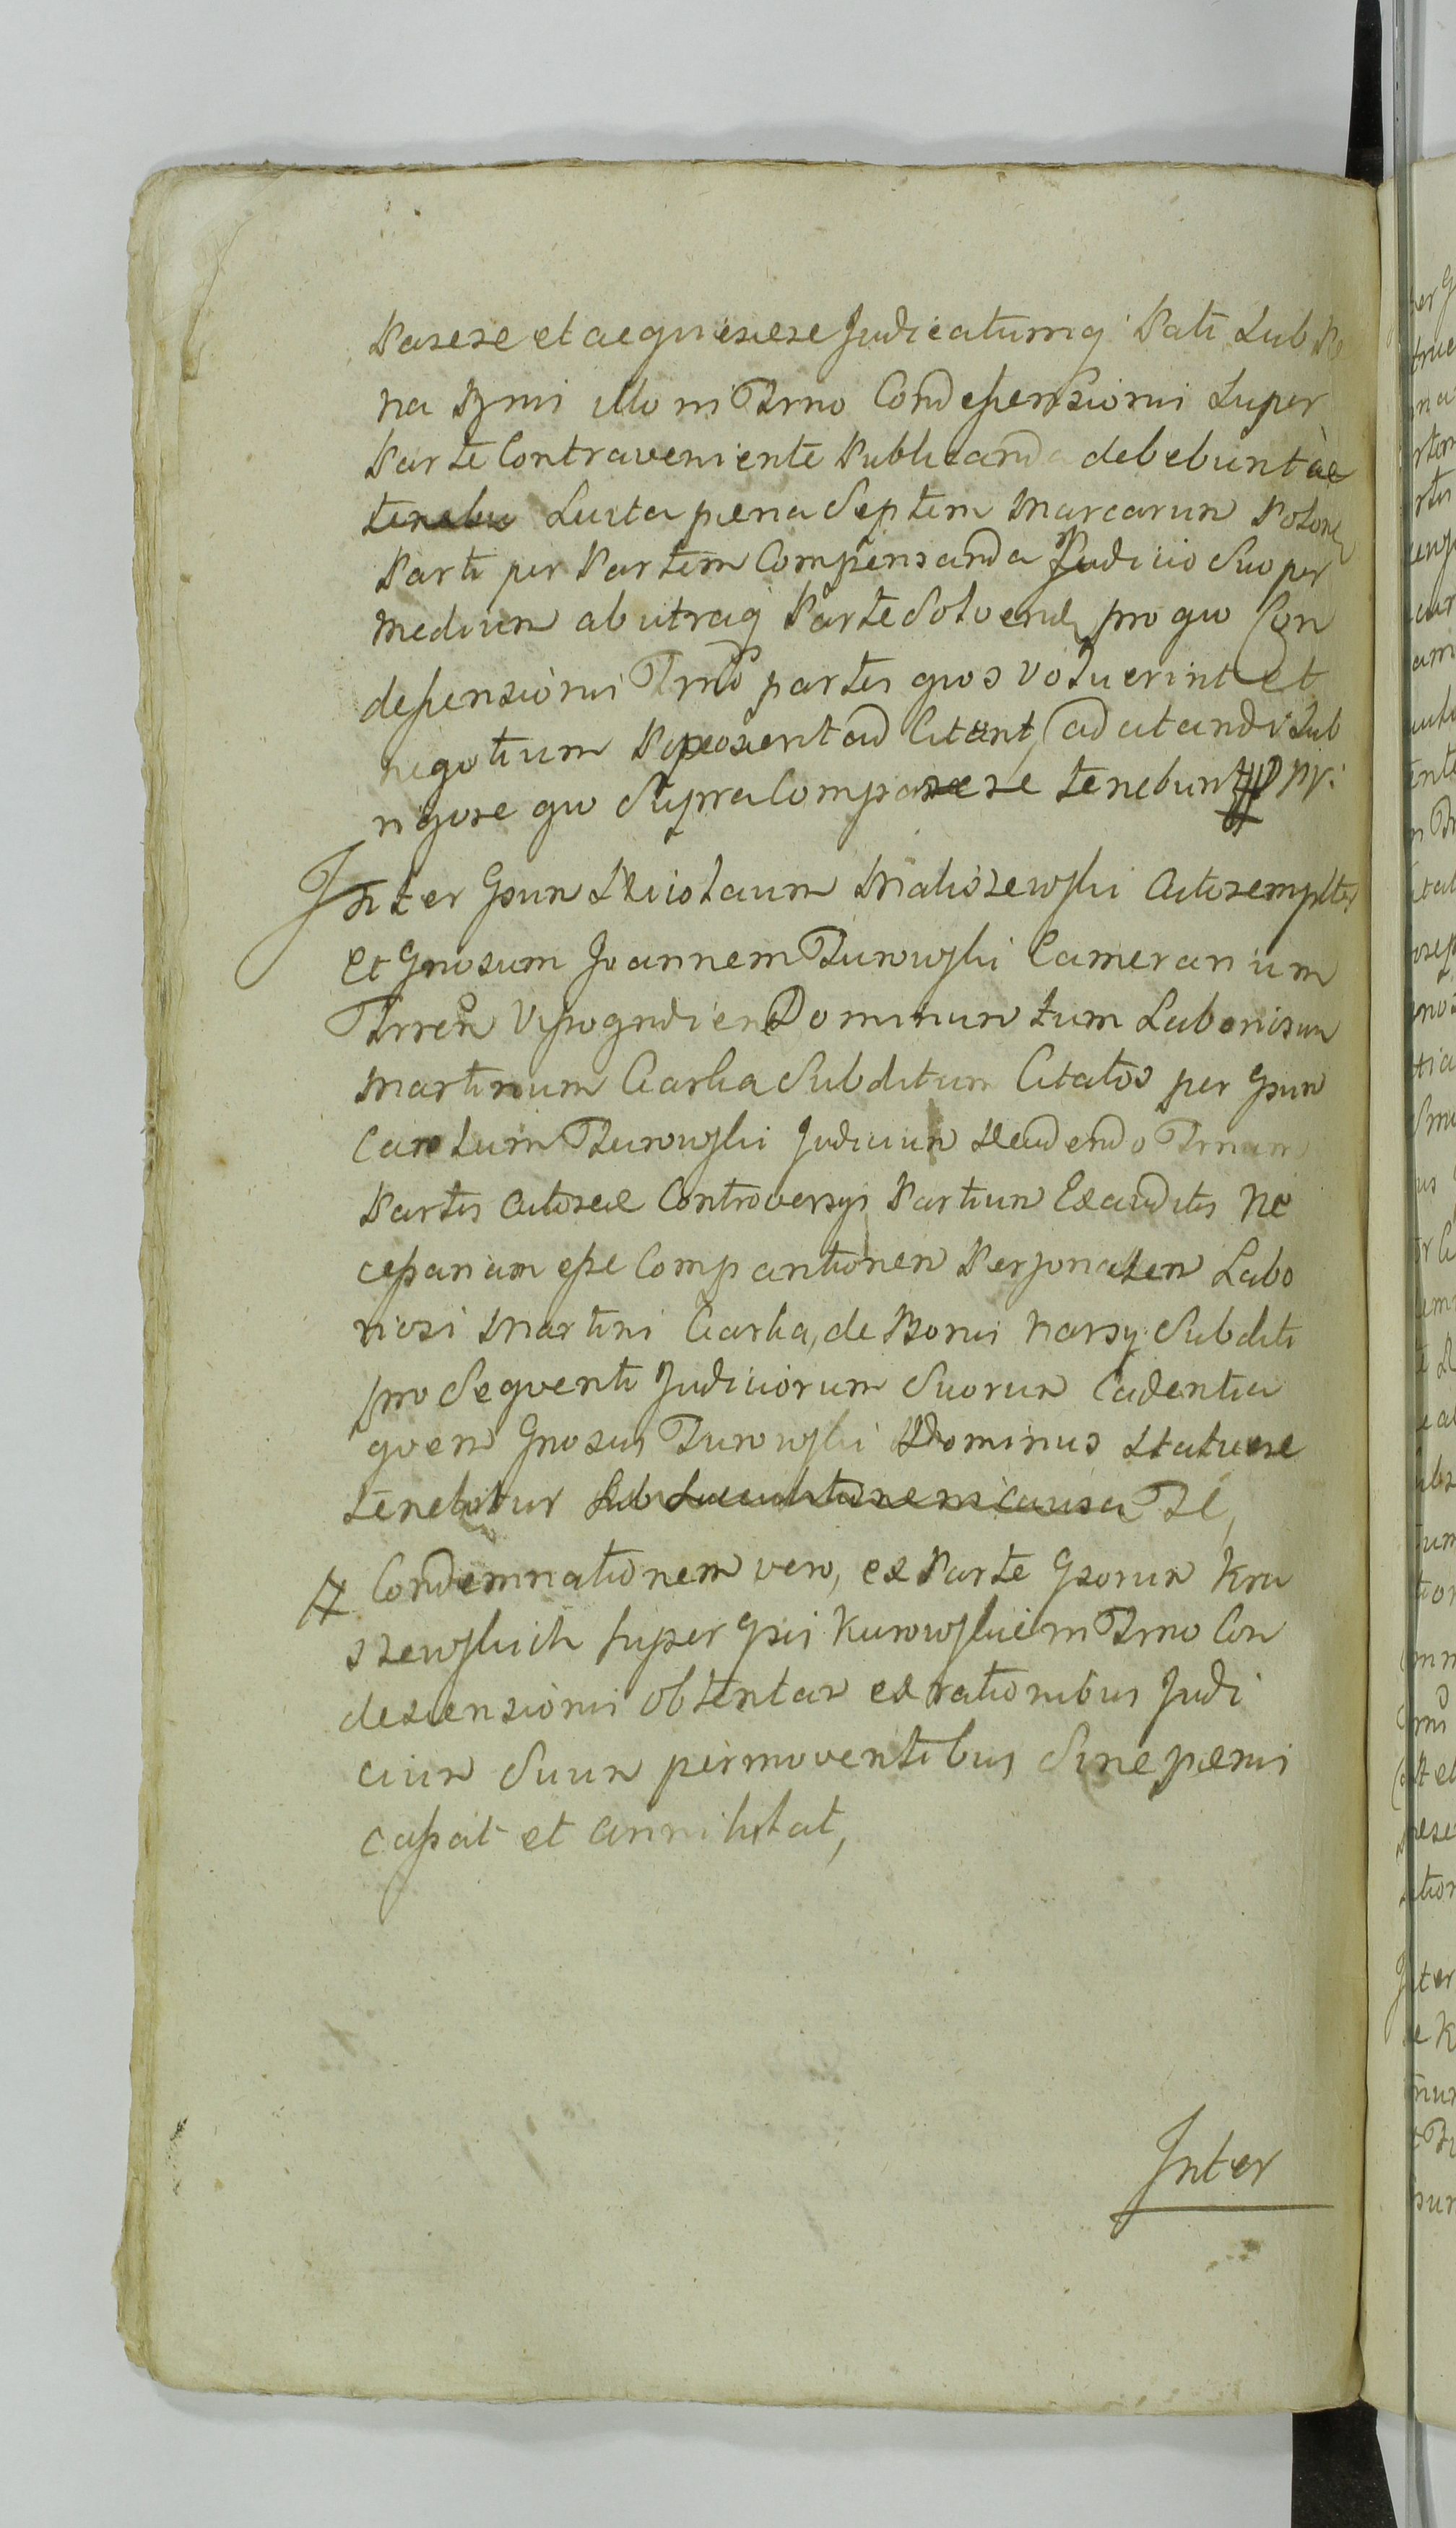 Parere et acquiescere Judicatumq Pati Sub Pe
na Bzni illo in Trno Condescensionis Super
Parte Contraveniente Publicanda debebunt ac
tenebu Luita pena Septem Marcarum Polon
Parti per Partem Compensanda Judicio Suo per
Medium ab utraq Parte Solvend pro quo Con
descensionis Trno partes quos Voluerint et
negotium ad Citant ad citandi Sub
rigore quo Supra Comparere tenebunt PPr:
Inter Gsum Nicolaum Maliszewski Actorem plter
et Gnosum Joannem Turowski Camerarium
Trren Vyszogrdien Dominum tum Laboriosum
Martinum Ciarka Subditum Citatos per Gsum
Carolum Turowski Judicium Decidendo Trnum
Partis Actoreae Controversys Partium Exauditis Ne
cessariam esse Comparitionem Personalem Labo
riosi Martini Ciarka, de Bonis Narzy Subditi
pro Sequenti Judiciorum Suorum Cadentia
quem Gnosus Turowski Dominus Statuere
tenebitur Sub Luculationem causa Te,
# Condemnationem vero, ex Parte Gsorum Kra
szewskich super Gsis Kurowskie in Trno Con
descensionis obtentam ex rationibus Judi
cium Suum permoventibus Sine poenis
cassat et annihilat,
Inter